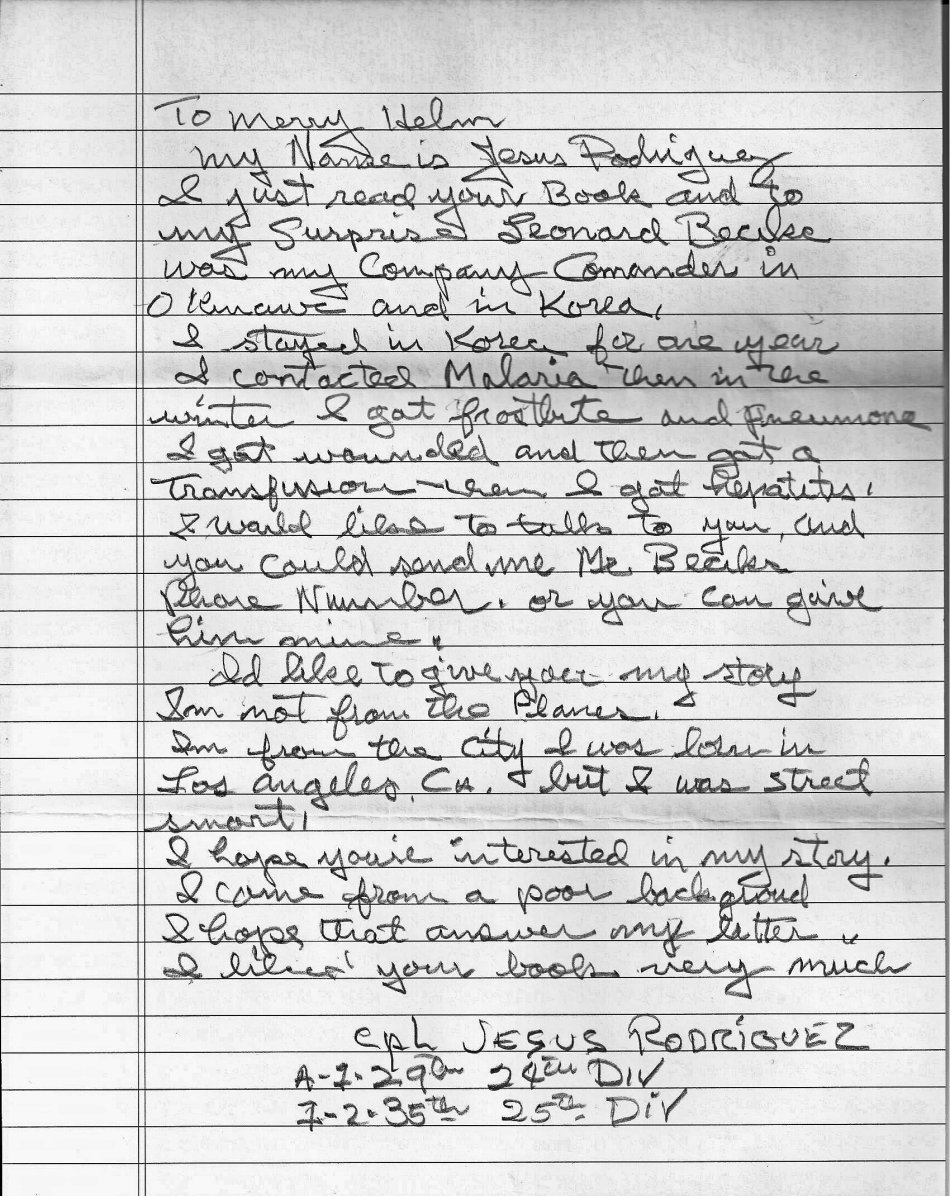 To Merry Helm
My Name is Jesus Rodriguez
I just read your Book and to
my Surprise Leonard Becike
was my Company Comander in
Okinawa and in Korea,
I stayed in Korea for one year
I contacted Malaria then in the
winter I got frostbite and Pneumone
I got wounded and then got a
Transfusion then I got hepatitis.
I would like to talk to you, and
you could send me Mr. Becike
Phone Number. or you can give
him mine.
Id like to give you my story
Im not from the Planes.
Im from the city I was born in
Los Angeles, CA. but I was street
smart,
I hope you're interested in my story.
I come from a poor backgroud
I hope that answer my letter
I liked your book very much
Cpl JESUS RODRIGUEZ
A-1-29th 24th DIV
25th DIV